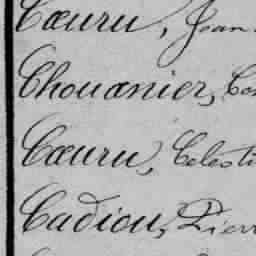 Cœuru, Jean
Chouanier, Co
Cœuru, Celesti
Cadiou, Pierr